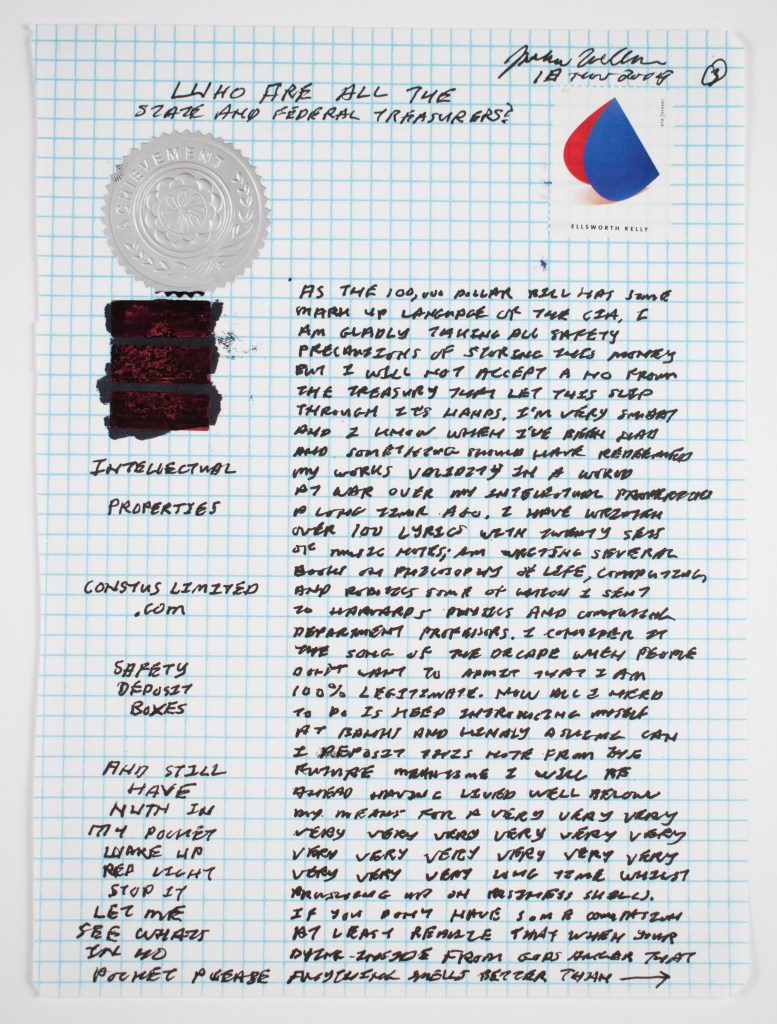 18 Nov 2008
3
WHO ARE ALL THE
STATE AND FEDERAL TREASURERS?
ACHIEVEMENT
USA forever
ELLSWORTH KELLY
AS THE 100,000 DOLLAR BILL HAS SOME
MARK UP LANGUAGE OF THE CIA, I
AM GLADLY TAKING ALL SAFETY
PRECAUTIONS OF STORING THIS MONEY
BUT I WILL NOT ACCEPT A NO FROM
THE TREASURY THAT LET THIS SLIP
THROUGH IT'S HANDS. I'M VERY SMART
AND I KNOW WHEN I'VE BEEN HAD
AND SOMETHING SHOULD HAVE REDEEMED
MY WORKS VALIDITY IN A WORLD
AT WAR OVER MY INTELECTUAL PROPERTIES
A LONG TIME AGO. I HAVE WRITTEN
OVER 100 LYRICS WITH TWENTY SETS
OF MUSIC NOTES; AM WRITING SEVERAL
BOOKS ON PHILOSOPHY OF LIFE, COMPUTING,
AND ROBOTICS SOME OF WHICH I SENT
TO HARVARDS PHYSICS AND COMPUTING
DEPARTMENT PROFESSORS. I CONSIDER IT
THE SONG OF THE DECADE WHEN PEOPLE
DON'T WANT TO ADMIT THAT I AM
100% LEGITIMATE. NOW ALL I NEED
TO DO IS KEEP INTRODUCING MYSELF
AT BANKS AND KINDLY ASKING CAN
I DEPOSIT THIS NOTE FROM THE
FUTURE MEANTIME I WILL BE
AHEAD HAVING LIVED WELL BELOW
MY MEANS FOR A VERY VERY VERY
VERY VERY VERY VERY VERY VERY
VERY VERY VERY VERY VERY VERY
VERY VERY VERY LONG TIME WHILST
BRUSHING UP ON BUSINESS SKILLS.
IF YOU DON'T HAVE SOME
AT LEAST REALIZE THAT WHEN YOUR
DYING INSIDE FROM GODS ANGER THAT
ANYTHING SMELLS BETTER THAN →
INTELLECTUAL
PROPERTIES
CONSTUS LIMITED
.COM
SAFETY
DEPOSIT
BOXES
AND STILL
HAVE
NUTH IN
MY POCKET
WAKE UP
RED LIGHT
STOP IT
LET ME
SEE WHATS
IN NO
POCKET PLEASE